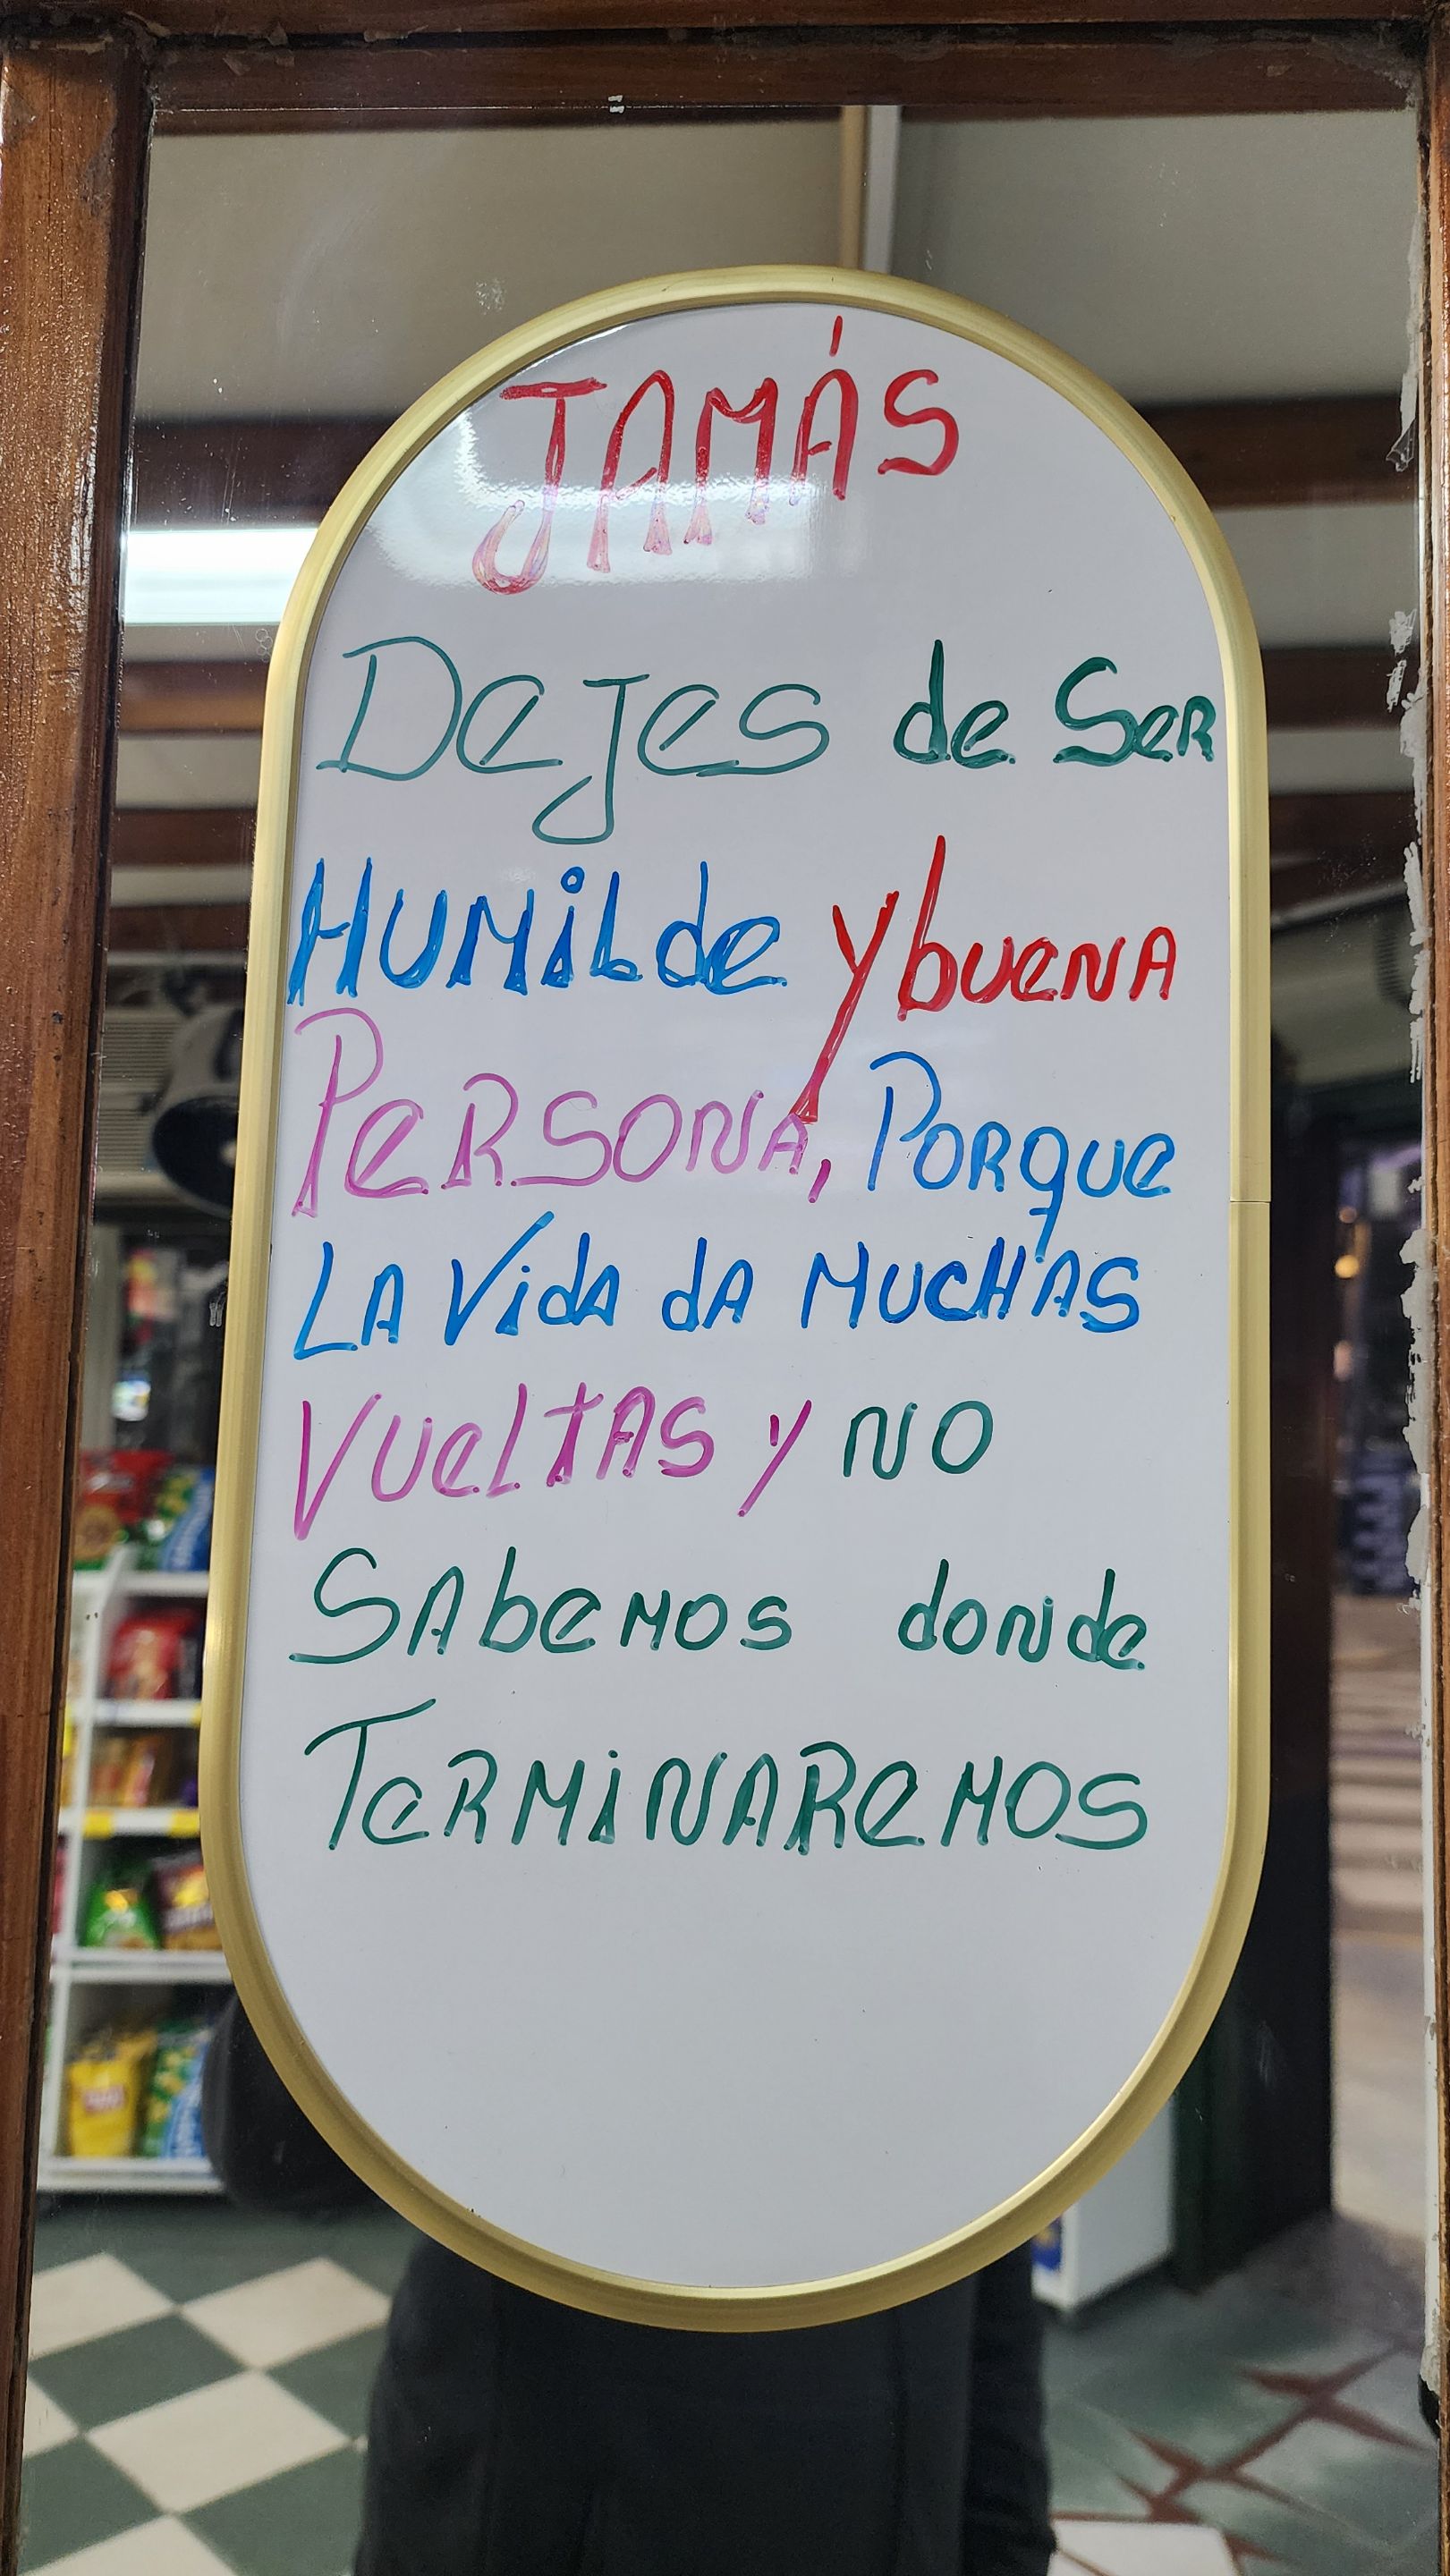 JAMÁS
Dejes de Ser
HUMiLde y bueNA
PeRSONA, PORque
LA Vida dA MUCHAS
VUeltAS y NO
SAbeMOS donde
TeRMiNAReMOS